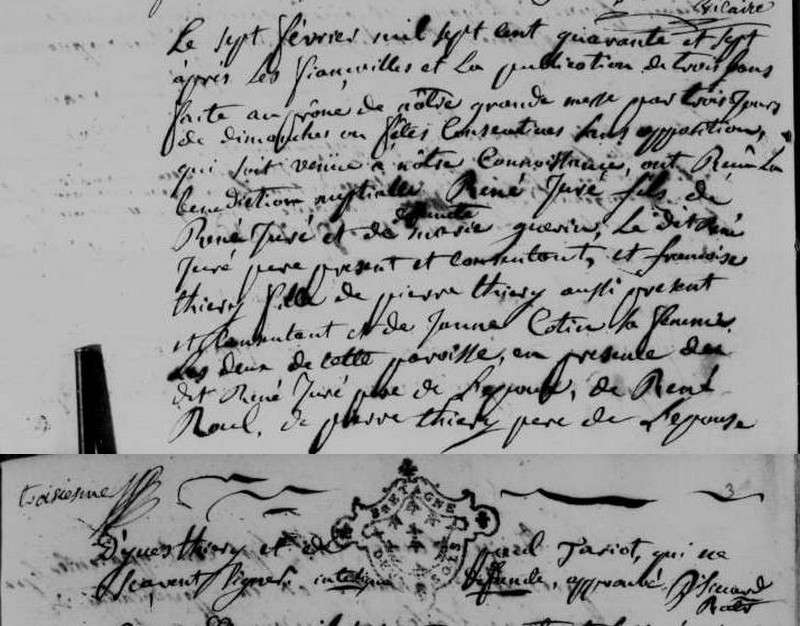 hilaire
Le sept février mil sept cent quarante et sept
après les fiançailles et La publication de trois bans
faite au prône de nôtre grande messe par trois Jours
de dimanches ou fêtes Consecutives sans opposition,
qui soit venüe a nôtre Connoissance, ont Reçû La
benediction nuptialle René Juré fils de
René Juré et de defunte marie guerin, Le dit René
Juré pere present et consentant, et francoise
thiery fille de pierre thiery aussi present
et Consentant et de Janne Cotin sa femme,
les deux de cette paroisse, en presence du
dit René Juré pere de L'epoux, de René
Roul, de pierre thiery pere de L'epouse
troisiesme
3
BRETAGNE
thiery et de
Tariot, qui ne
scavent signer. interligne
defunte, approuvé.